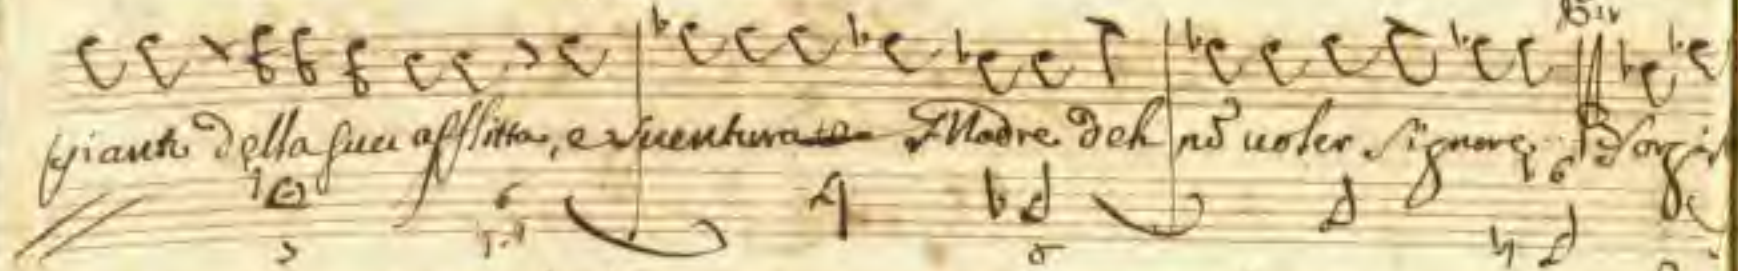 pianti della sua afflitta, e suenturata Madre deh nō uoler Signore